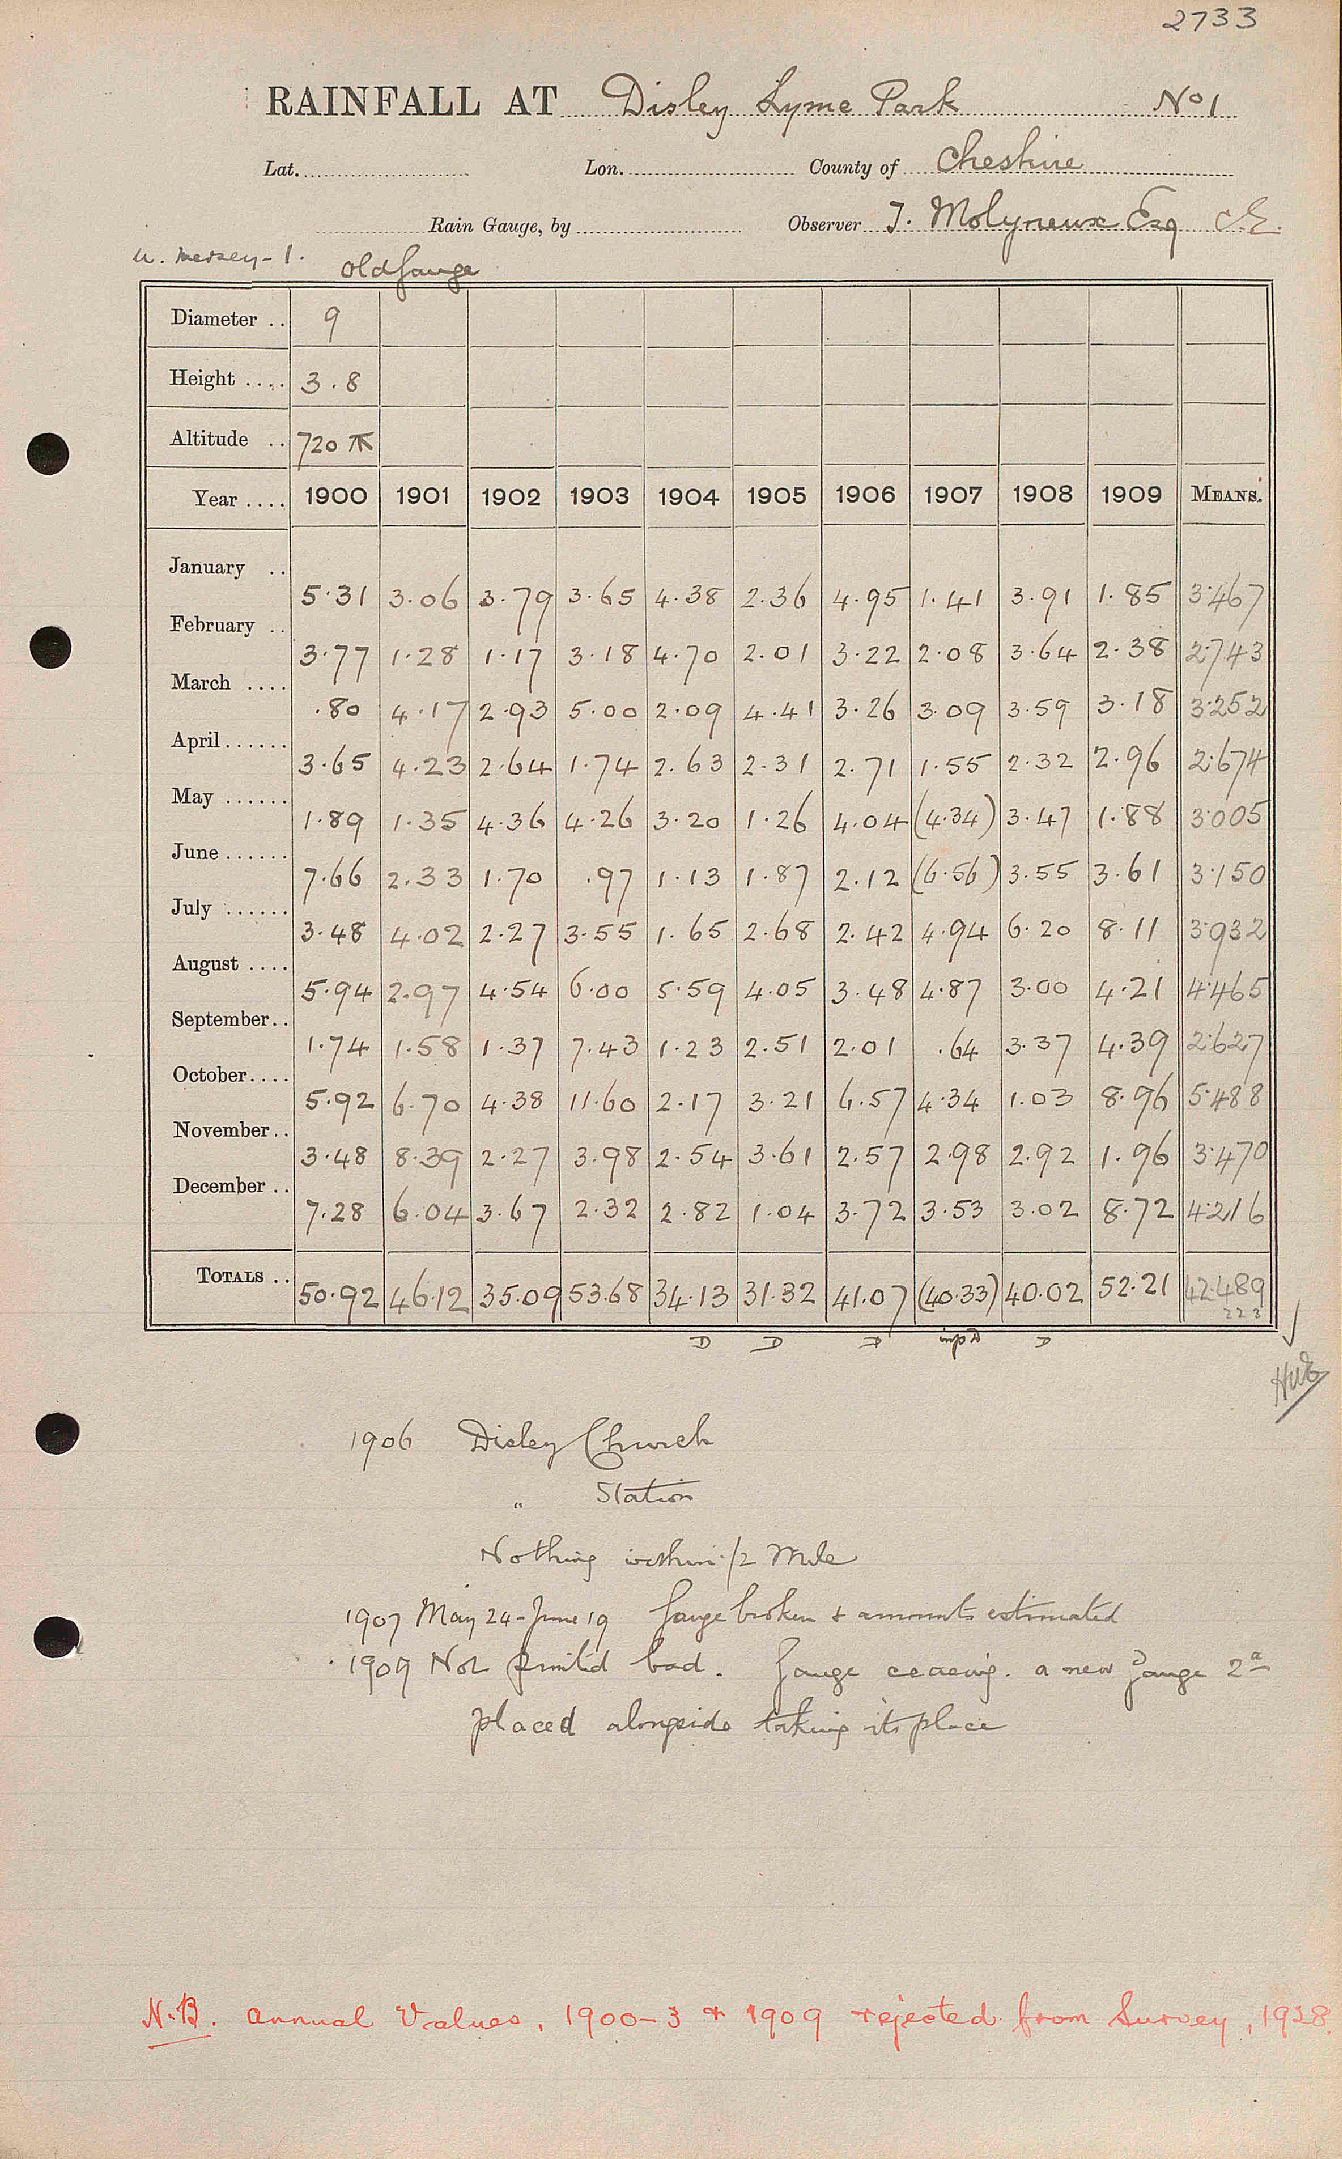 2733
RAINFALL AT Disley Lyme Park No 1
Lat. Lon. County of Cheshire
Rain Gauge, by Observer J. Molyneux Esq C.E.
U. Mersey - 1. Old Gauge
Diameter .. 9
Height .... 3.8
Altitude .. 720
Year .... 1900 1901 1902 1903 1904 1905 1906 1907 1908 1909 MEANS.
January .. 5.31 3.06 3.79 3.65 4.38 2.36 4.95 1.41 3.91 1.85 3.467
February .. 3.77 1.28 1.17 3.18 4.70 2.01 3.22 2.08 3.64 2.38 2.743
March .... .80 4.17 2.93 5.00 2.09 4.41 3.26 3.09 3.59 3.18 3.252
April ...... 3.65 4.23 2.64 1.74 2.63 2.31 2.71 1.55 2.32 2.96 2.674
May ...... 1.89 1.35 4.36 4.26 3.20 1.26 4.04 (4.34) 3.47 1.88 3.005
June ...... 7.66 2.33 1.70 .97 1.13 1.87 2.12 (6.56) 3.55 3.61 3.150
July ...... 3.48 4.02 2.27 3.55 1.65 2.68 2.42 4.94 6.20 8.11 3.932
August .... 5.94 2.97 4.54 6.00 5.59 4.05 3.48 4.87 3.00 4.21 4.465
September .. 1.74 1.58 1.37 7.43 1.23 2.51 2.01 .64 3.37 4.39 2.627
October .... 5.92 6.70 4.38 11.60 2.17 3.21 6.57 4.34 1.03 8.96 5.488
November .. 3.48 8.39 2.27 3.98 2.54 3.61 2.57 2.98 2.92 1.96 3.470
December .. 7.28 6.04 3.67 2.32 2.82 1.04 3.72 3.53 3.02 8.72 4.216
TOTALS .. 50.92 46.12 35.09 53.68 34.13 31.32 41.07 (40.33) 40.02 52.21 42.489
223
D D D D D
1906 Disley Church
" Station
Nothing within 1/2 Mile
1907 May 24 - June 19 Gauge broken & amounts estimated
1909 Not printed bad. Gauge ceasing. a new gauge 2a
placed alongside taking its place
N.B. Annual Values, 1900-3 & 1909 rejected from Survey, 1928.